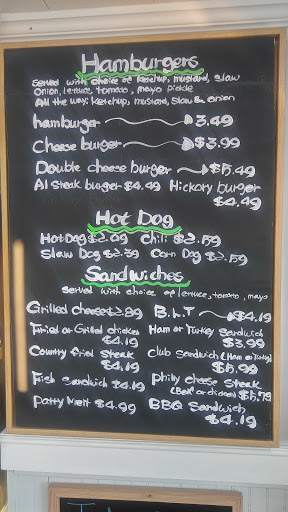 Hamburgers
Served with choice of ketchup, mustard, slaw
Onion, lettuce, tomato, mayo pickle
All the way: ketchup, mustard, Slaw & onion
hamburger 3.49
Cheese burger $3.99
Double cheese burger $5.49
A1 Steak burger $4.49 Hickory burger
$4.49
Hot Dog
Hot Dog $2.09 Chili $2.59
Slaw Dog $2.59 Corn Dog $2.59
Sandwiches
Served with choice of lettuce, tomato, mayo
Grilled cheese $2.89 B.L.T $4.19
Fried or Grilled chicken Ham or Turkey Sandwich
$4.19 $3.99
Country fried Steak Club Sandwich (Ham or Turkey)
$4.19 $5.99
Fish Sandwich $4.19 Philly cheese Steak
(Beef or chicken) $5.79
Patty Melt $4.99 BBQ Sandwich
$4.19